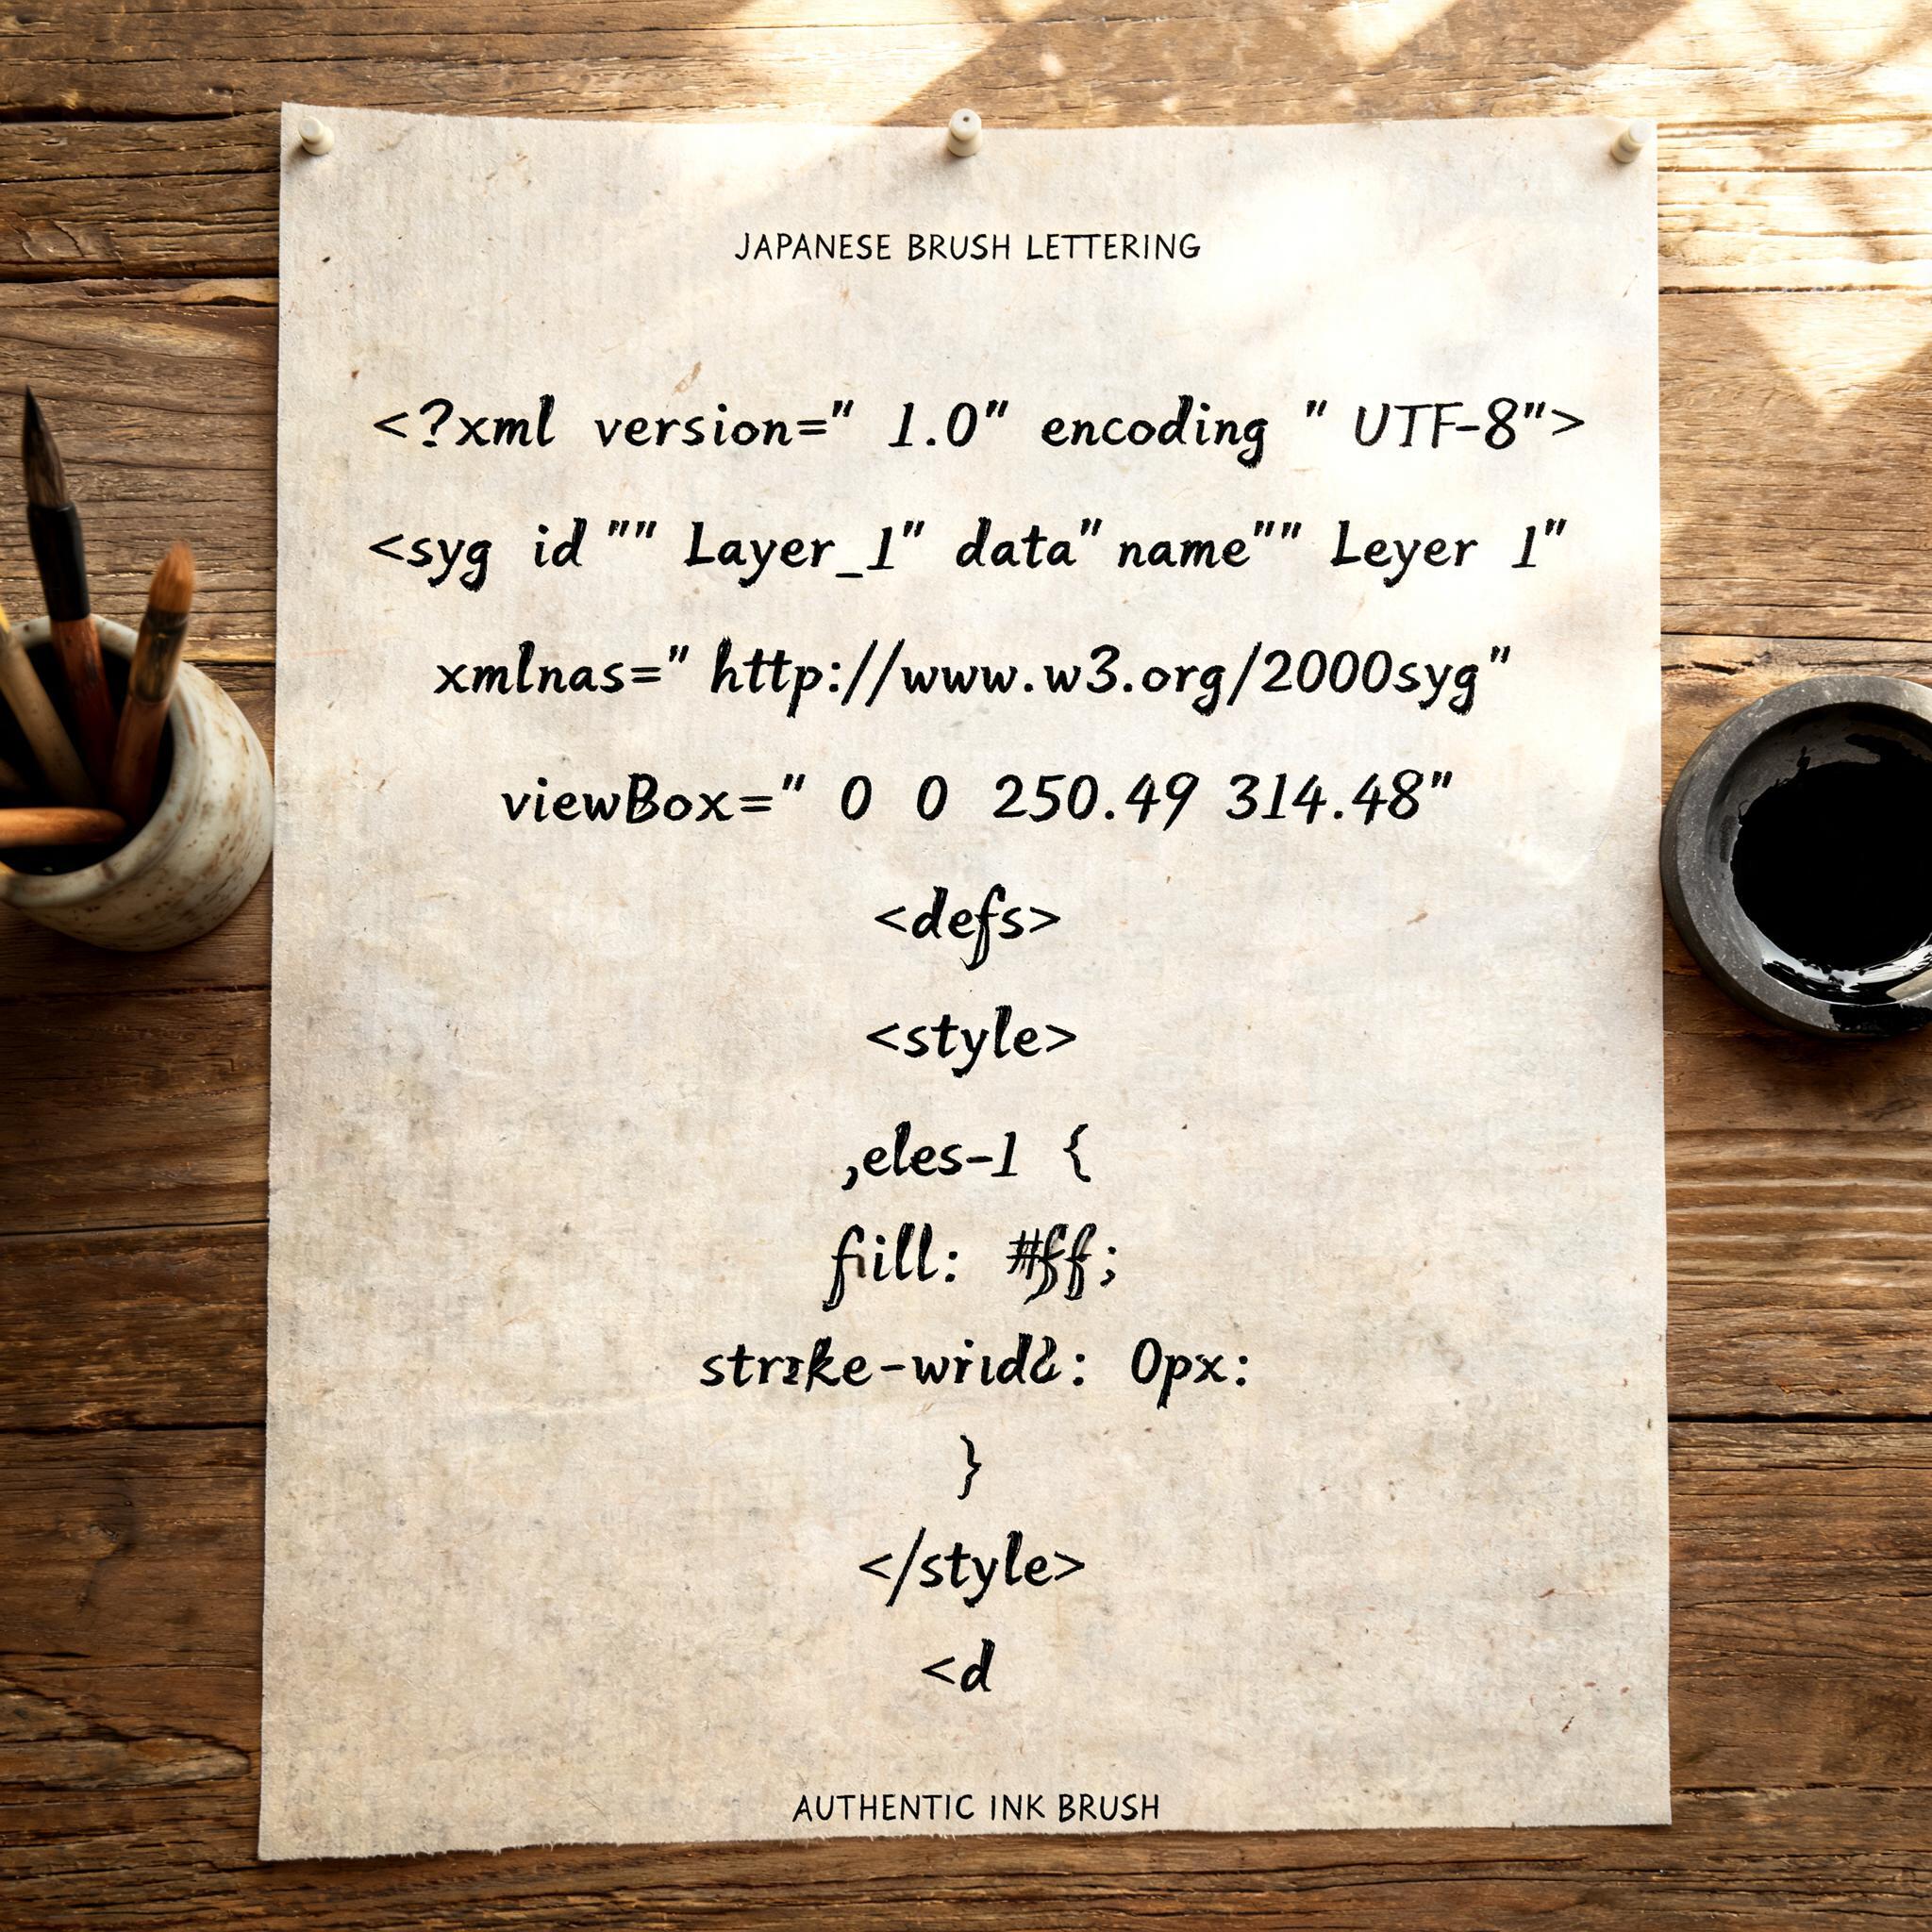 JAPANESE BRUSH LETTERING
<?xml version=" 1.0" encoding " UTF-8">
<syg id "" Layer_1" data" name"" Leyer 1"
xmlnas=" http://www.w3.org/2000syg"
viewBox=" 0 0 250.49 314.48"
<defs>
<style>
,eles-1 {
fiill: #ff;
0px:
}
</style>
<d
AUTHENTIC INK BRUSH